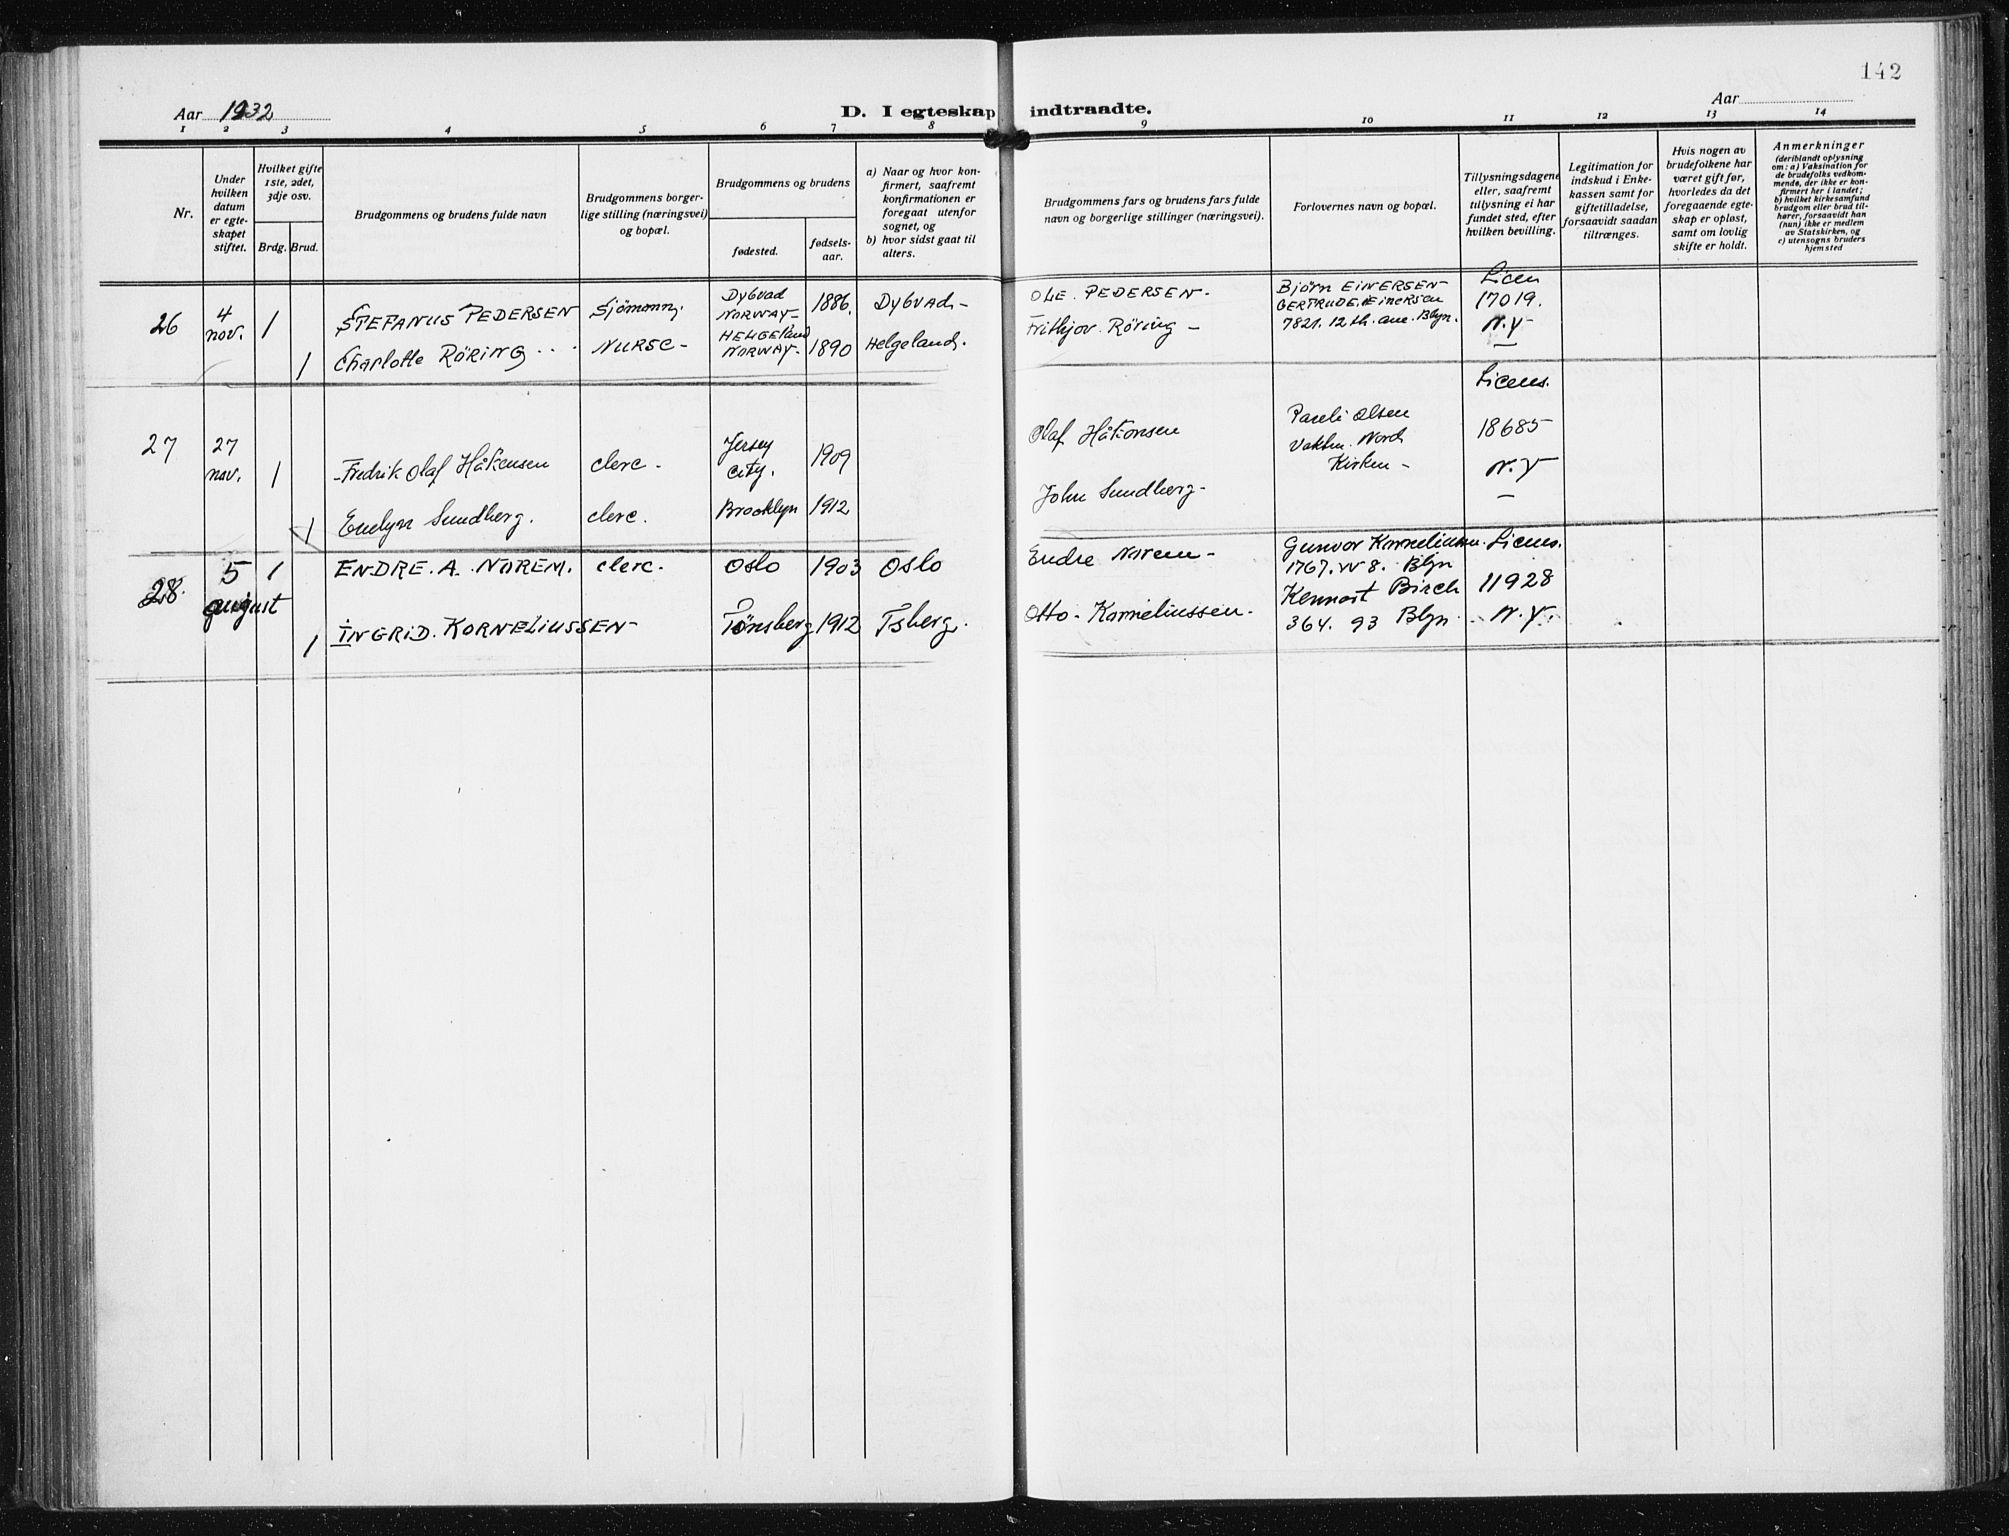 142
Aar 1932
D. I egteskap indtraadte.
Aar
1 2 3 4 5 6 7 8 9 10 11 12 13 14
Nr.
Under hvilken datum er egte-skapet stiftet.
Hvilket gifte 1ste, 2det, 3dje osv.
Brdg. Brud.
Brudgommens og brudens fulde navn
Brudgommens borger-
lige stilling (næringsvei)
og bopæl.
Brudgommens og brudens
fødested.
fødsels-
aar.
a) Naar og hvor kon-
firmert, saafremt
konfirmationen er
foregaat utenfor
sognet, og
b) hvor sidst gaat til
alters.
Brudgommens fars og brudens fars fulde
navn og borgerlige stillinger (næringsvei).
Forlovernes navn og bopæl.
Tillysningsdagene
eller, saafremt
tillysning ei har
fundet sted, efter
hvilken bevilling.
Legitimation for
indskud i Enke-
kassen samt for
giftetilladelse,
forsaavidt saadan
tiltrænges.
Hvis nogen av
brudefolkene har
været gift før,
hvorledes da det
foregaaende egte-
skap er opløst,
samt om lovlig
skifte er holdt.
Anmerkninger
(deriblandt oplysning
om: a) Vaksination for
de brudefolks vedkom-
mende, der ikke er kon-
firmert her i landet;
b) hvilket kirkesamfund
brudgom eller brud til-
hører, forsaavidt han
(hun) ikke er medlem
av Statskirken, og
c) utensogns bruders
hjemsted
26 4 nov. 1 STEFANUS PEDERSEN Sjömann. Dybvad NORWAY- 1886. Dybvad-
1 Charlotte RÖRING NURSE- HELGEland NORWAY- 1890 Helgeland.
OLE. PEDERSEN-
Frithjov. Röring -
Bjørn EINERSEN-
GERTRUDE EINERSEN
7821. 12th. ave. Blyn.
Licen
17019.
N.Y-
27 27 nov. 1 Fredrik Olaf Håkonsen clerc - Jersey City. 1909
1 Evelyn Sundberg. clerc. Brooklyn 1912
Olaf Håkonsen
John Sundberg-
Pareli Olsen
Vaktm. Nord
Kirken-
Licens.
18685-
N.Y
28. 5 august 1 ENDRE. A. NOREM. clerc. Oslo 1903 Oslo
1 INGRID. KORNELIUSSEN- Tönsberg 1912 Tsberg.
Endre Norem-
Otto- Korneliussen-
Gunvor Korneliussen.
1767. W 8. Blyn
Kennart Birch
364. 93 Blyn
Licens.
11928
N.Y.